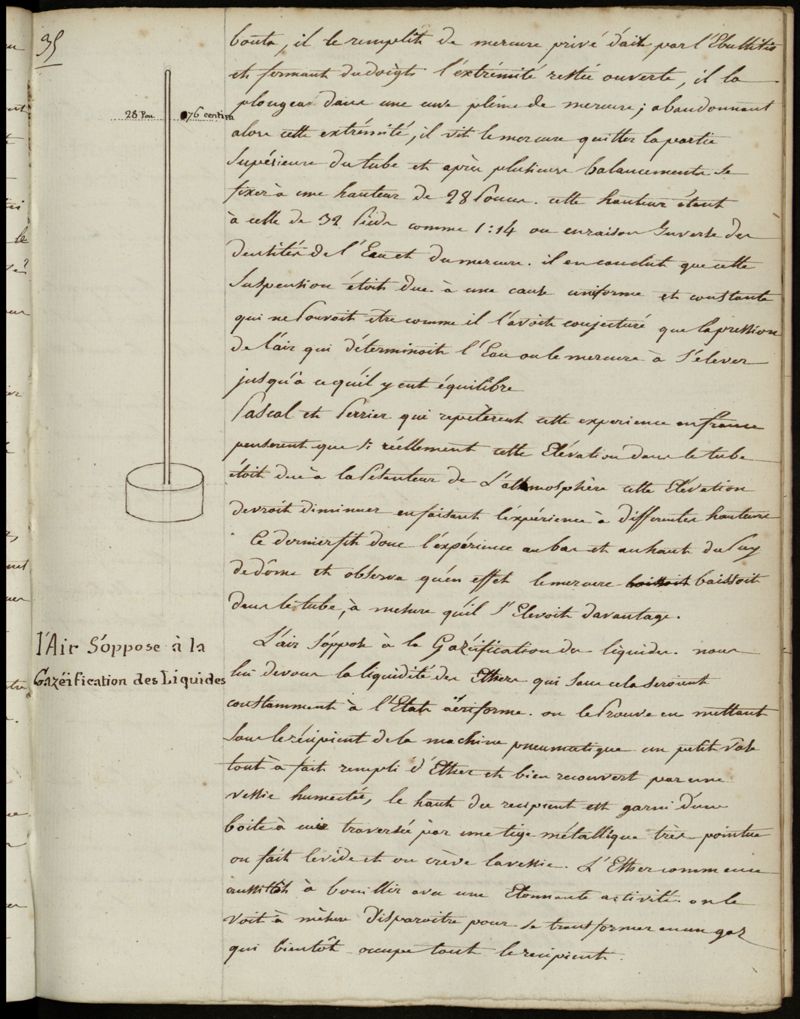 35
28 Pou. 76 centim
bouts, il le remplit de mercure privé d'air par l'Ebullition
et fermant du doigts l'extrémité restée ouverte, il la
plongea dans une cuve pleine de mercure; abandonnant
alors cette extrémité, il vit le mercure quitter la partie
Supérieure du tube et après plusieurs balancements se
fixer à une hauteur de 28 Pouces. cette hauteur étant
à celle de 32 Pieds comme 1:14 ou en raison Inverse des
densités de l'Eau et du mercure. il en conclut que cette
Suspension étoit due à une cause uniforme et constante
qui ne Pouvoit etre comme il l'avoit conjecturé que la pression
de l'air qui déterminoit l'Eau ou le mercure à S'élever
jusqu'à ce qu'il y eut équilibre
Pascal et Perrier qui repeterent cette experience en france
penserent que Si réellement cette Elévation dans le tube
étoit due à la Pesanteur de L'atmosphère cette Elévation
devroit diminuer en faisant l'expérience à differentes hauteurs
Ce dernier fit donc l'expérience au bas et au haut du Puy
de dôme et observa qu'en effet le mercure baissoit baissoit
dans le tube, à mesure qu'il S'Elevoit davantage.
l'Air S'oppose à la
Gazéification des Liquides
L'air S'oppose à la Gazéification des liquides. nous
lui devons la liquidité des Ethers qui Sans cela seroient
constamment à l'Etat aëriforme. on le Prouve en mettant
Sous le récipient de la machine pneumatique un petit vase
tout à fait rempli d'Ether et bien recouvert par une
vessie humectée, le haut du recipient est garni d'une
boite à cuir traversée par une tige métallique très pointue
on fait le vide et on crève la vessie. L'Ether commence
aussitôt à bouillir avec une Etonnante activité. on le
Voit à mesure Disparoitre pour se transformer en un gaz
qui bientôt occupe tout le recipient.